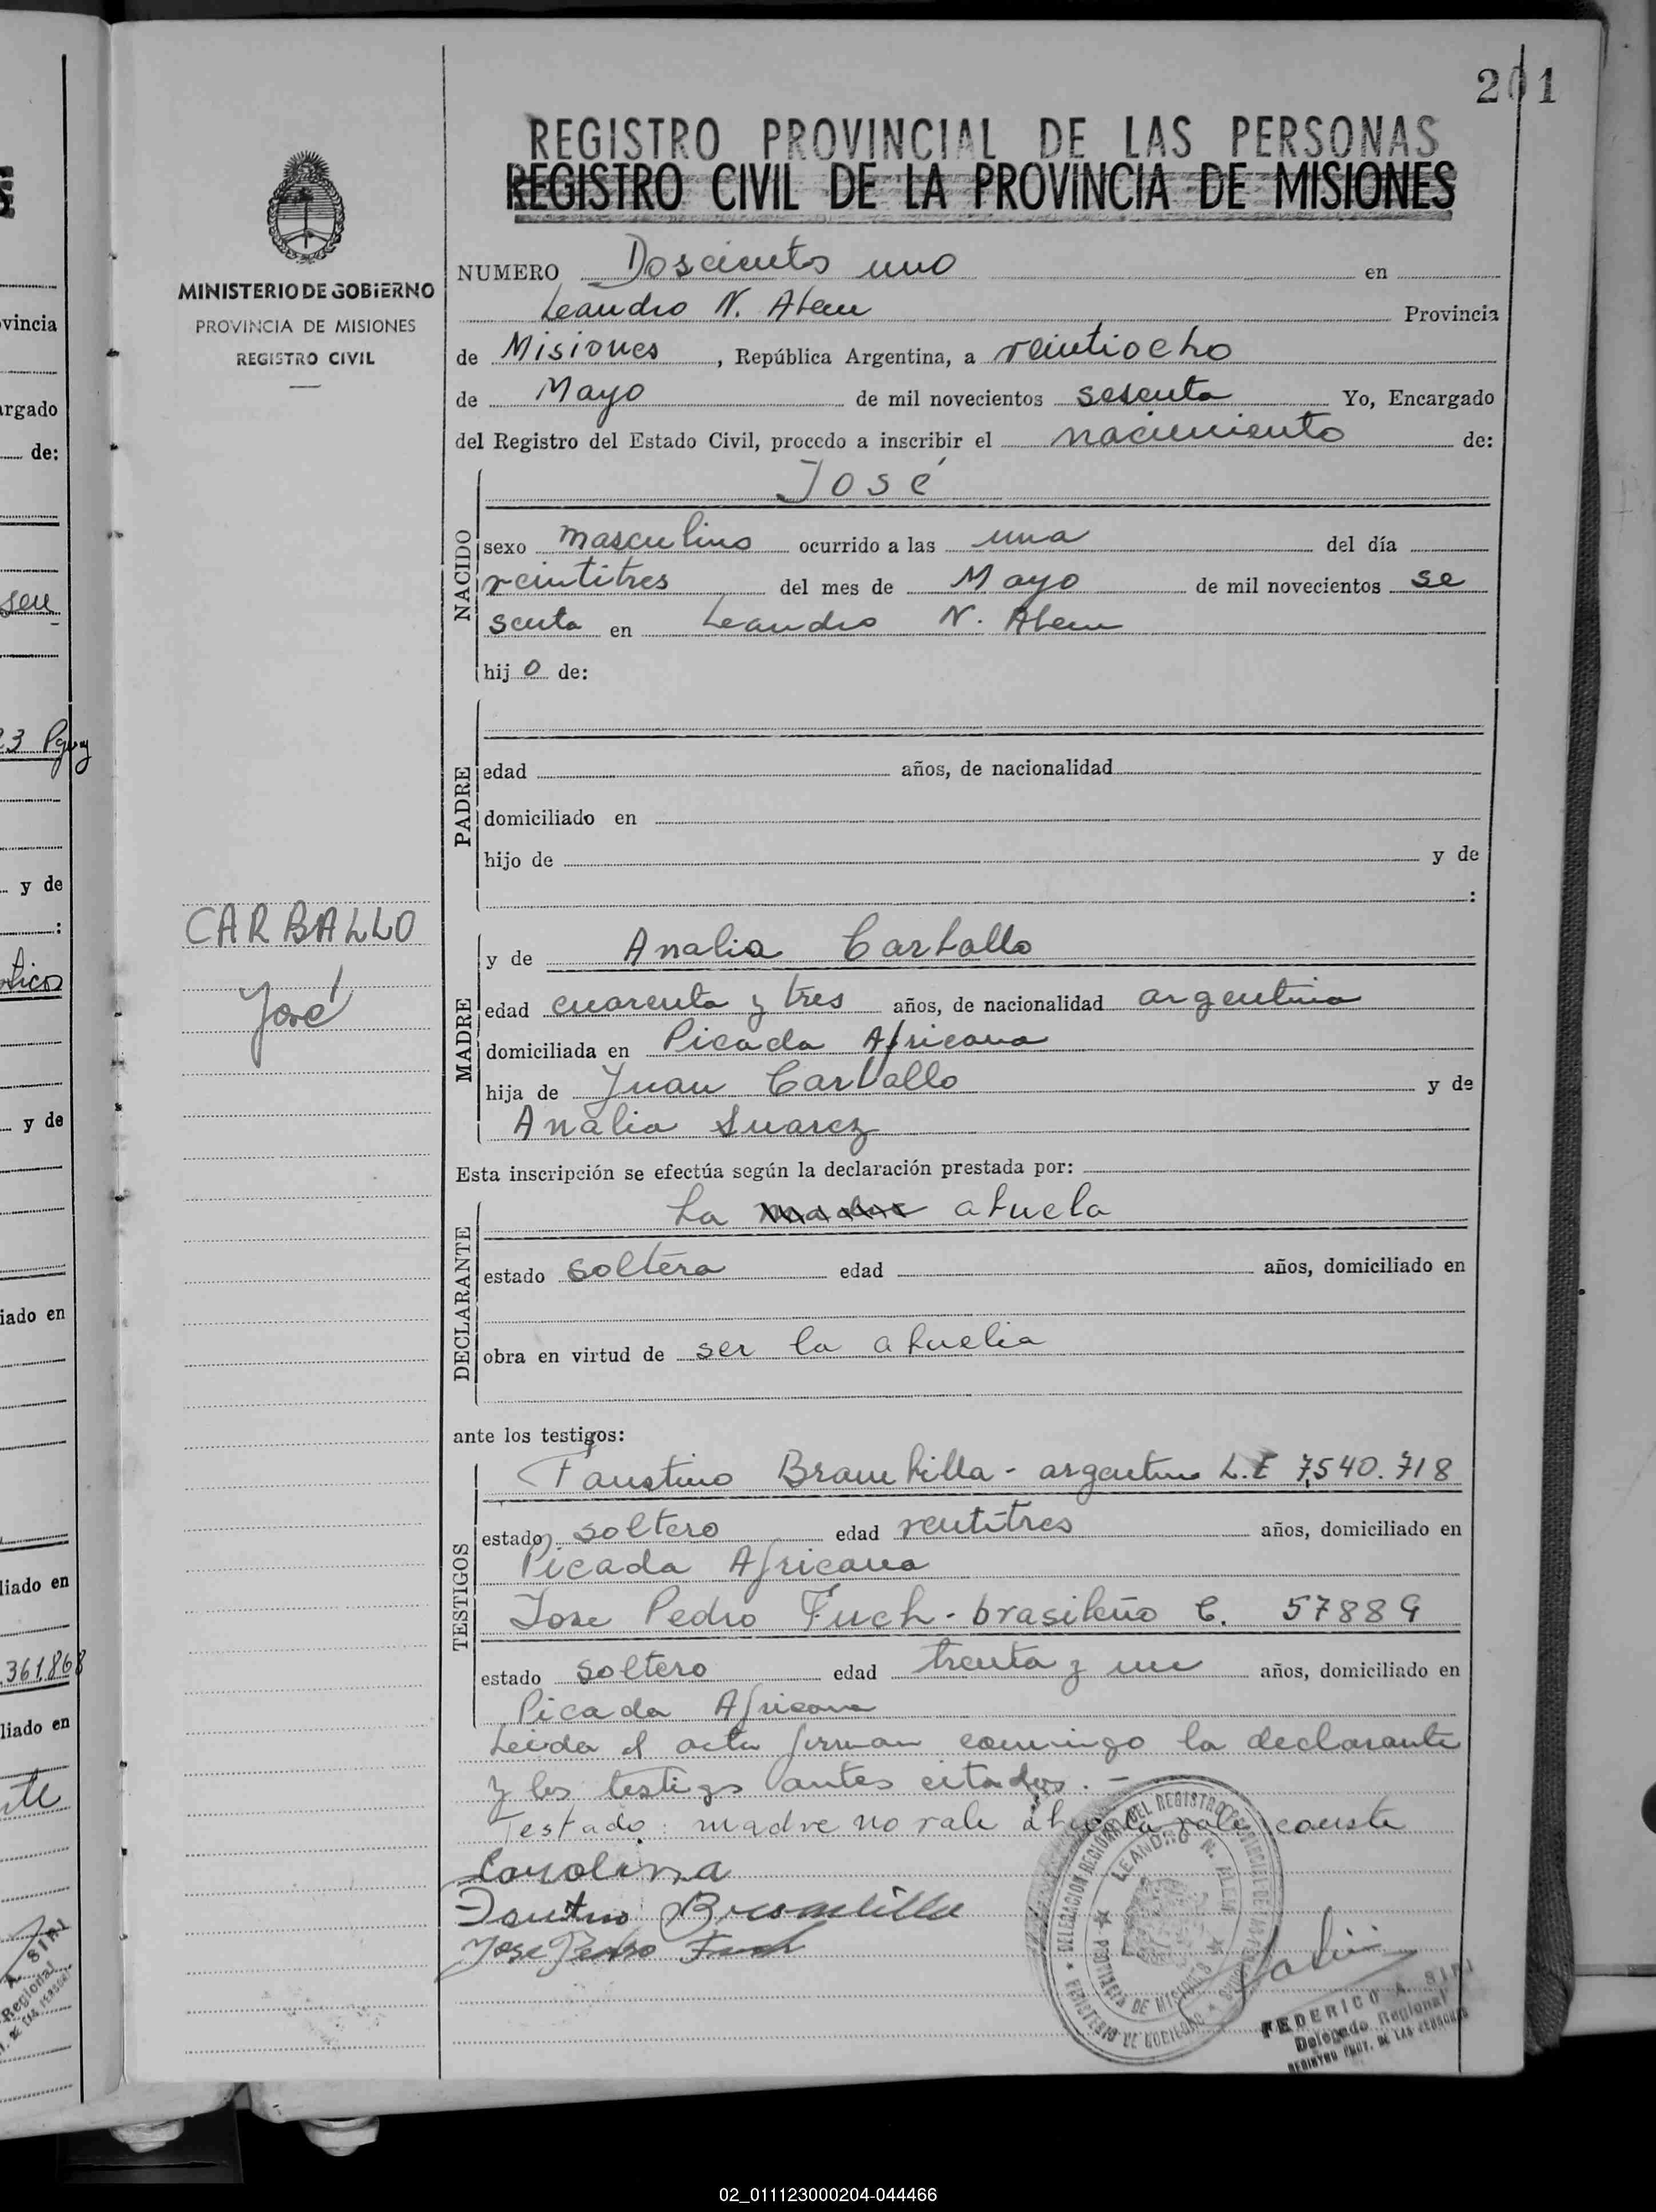 201
REGISTRO PROVINCIAL DE LAS PERSONAS
REGISTRO CIVIL DE LA PROVINCIA DE MISIONES
MINISTERIO DE GOBIERNO
PROVINCIA DE MISIONES
REGISTRO CIVIL
CARBALLO
José
NUMERO Doscientos uno en
Leandro N. Alem Provincia
de Misiones, República Argentina, a veintiocho
de Mayo de mil novecientos sesenta Yo, Encargado
del Registro del Estado Civil, procedo a inscribir el nacimiento de:
NACIDO
José
sexo masculino ocurrido a las una del día
veintitres del mes de Mayo de mil novecientos se
senta en Leandro N. Alem
hijo de:
PADRE
edad años, de nacionalidad
domiciliado en
hijo de y de
:
MADRE
y de Analia Carballo
edad cuarenta y tres años, de nacionalidad argentina
domiciliada en Picada Africana
hija de Juan Carballo y de
Analia Suarez
Esta inscripción se efectúa según la declaración prestada por:
DECLARANTE
La madre abuela
estado soltera edad años, domiciliado en
obra en virtud de ser la abuelia
ante los testigos:
TESTIGOS
Faustino Brambilla - argentino L.E 7,540.718
estado soltero edad ventitres años, domiciliado en
Picada Africana
Jose Pedro Fuch - brasileño C. 57889
estado soltero edad trenta y un años, domiciliado en
Picada Africana
Leida el acta firman conmigo la declarante
y los testigos antes citados. -
Testado: madre no vale abuela vale conste
Carolina
Faustino Brambilla
Jose Pedro Fuch
DELEGACION REGIONAL DEL REGISTRO PROVINCIAL DE LAS PERSONAS
LEANDRO N. ALEM
PROVINCIA DE MISIONES
MINISTERIO DE GOBIERNO
FEDERICO A. SIRI
Delegado Regional
REGISTRO PROV. DE LAS PERSONAS
vincia
argado
de:
23 Pguy
y de
:
y de
iado en
liado en
361.868
liado en
A. SIRI
Regional
02_011123000204-044466